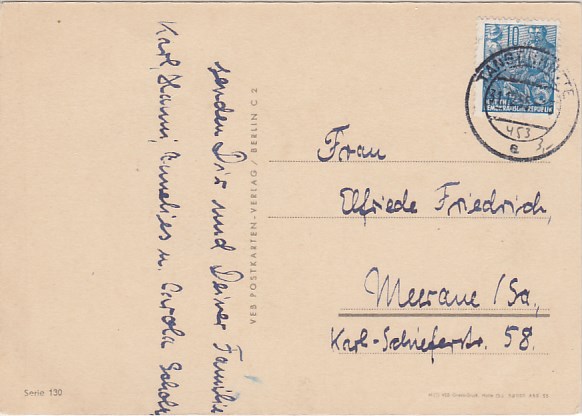 senden Dir und Deiner Familie
Karl, Hanni, Annelies u. Carola Scholz
VEB POSTKARTEN-VERLAG / BERLIN C 2
10
DEMOKRATISCHE REPUBLIK
453
e
3,-
Frau
Elfriede Friedrich,
Meerane / Sa.,
Karl-Schieferstr. 58.
Serie 130